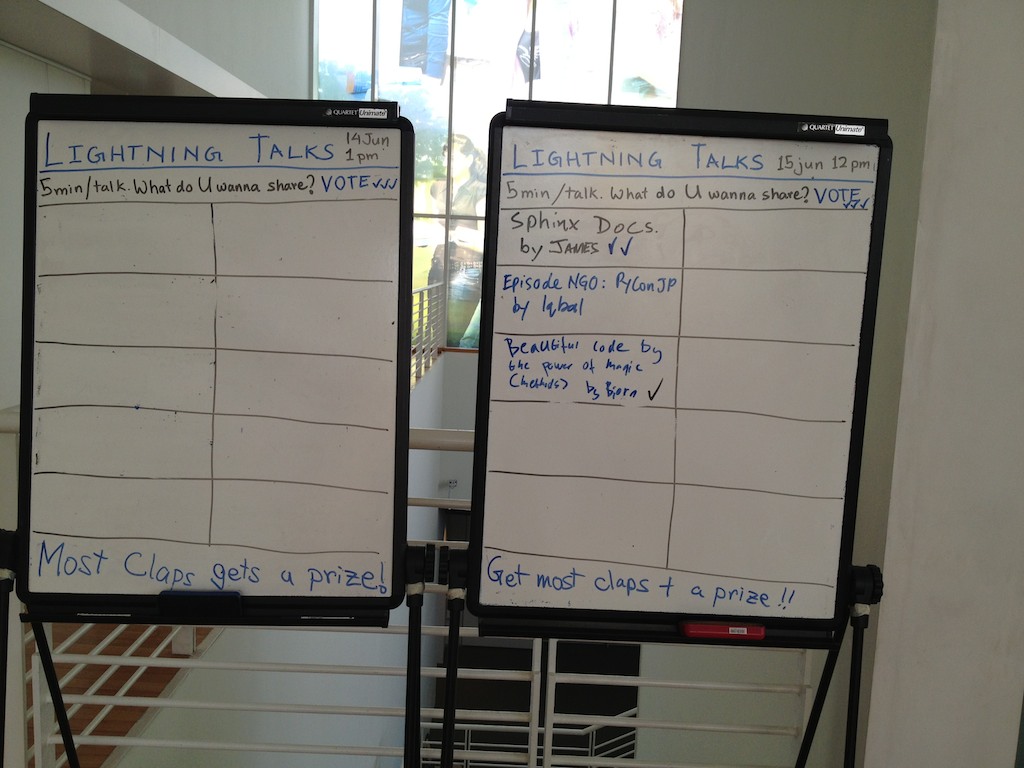 QUARTET Unimate
LIGHTNING TALKS 14 Jun
1pm
5min/talk. What do U wanna share? VOTE ✓✓✓
Most Claps gets a prize!
QUARTET Unimate
LIGHTNING TALKS 15jun 12pm
5min/talk. What do U wanna share? VOTE
✓✓✓
Sphinx Docs.
by JAMES ✓✓
Episode NGO: PyConJP
by Iqbal
Beautiful code by
the power of magic
(methods) by Bjorn ✓
Get most claps + a prize!!